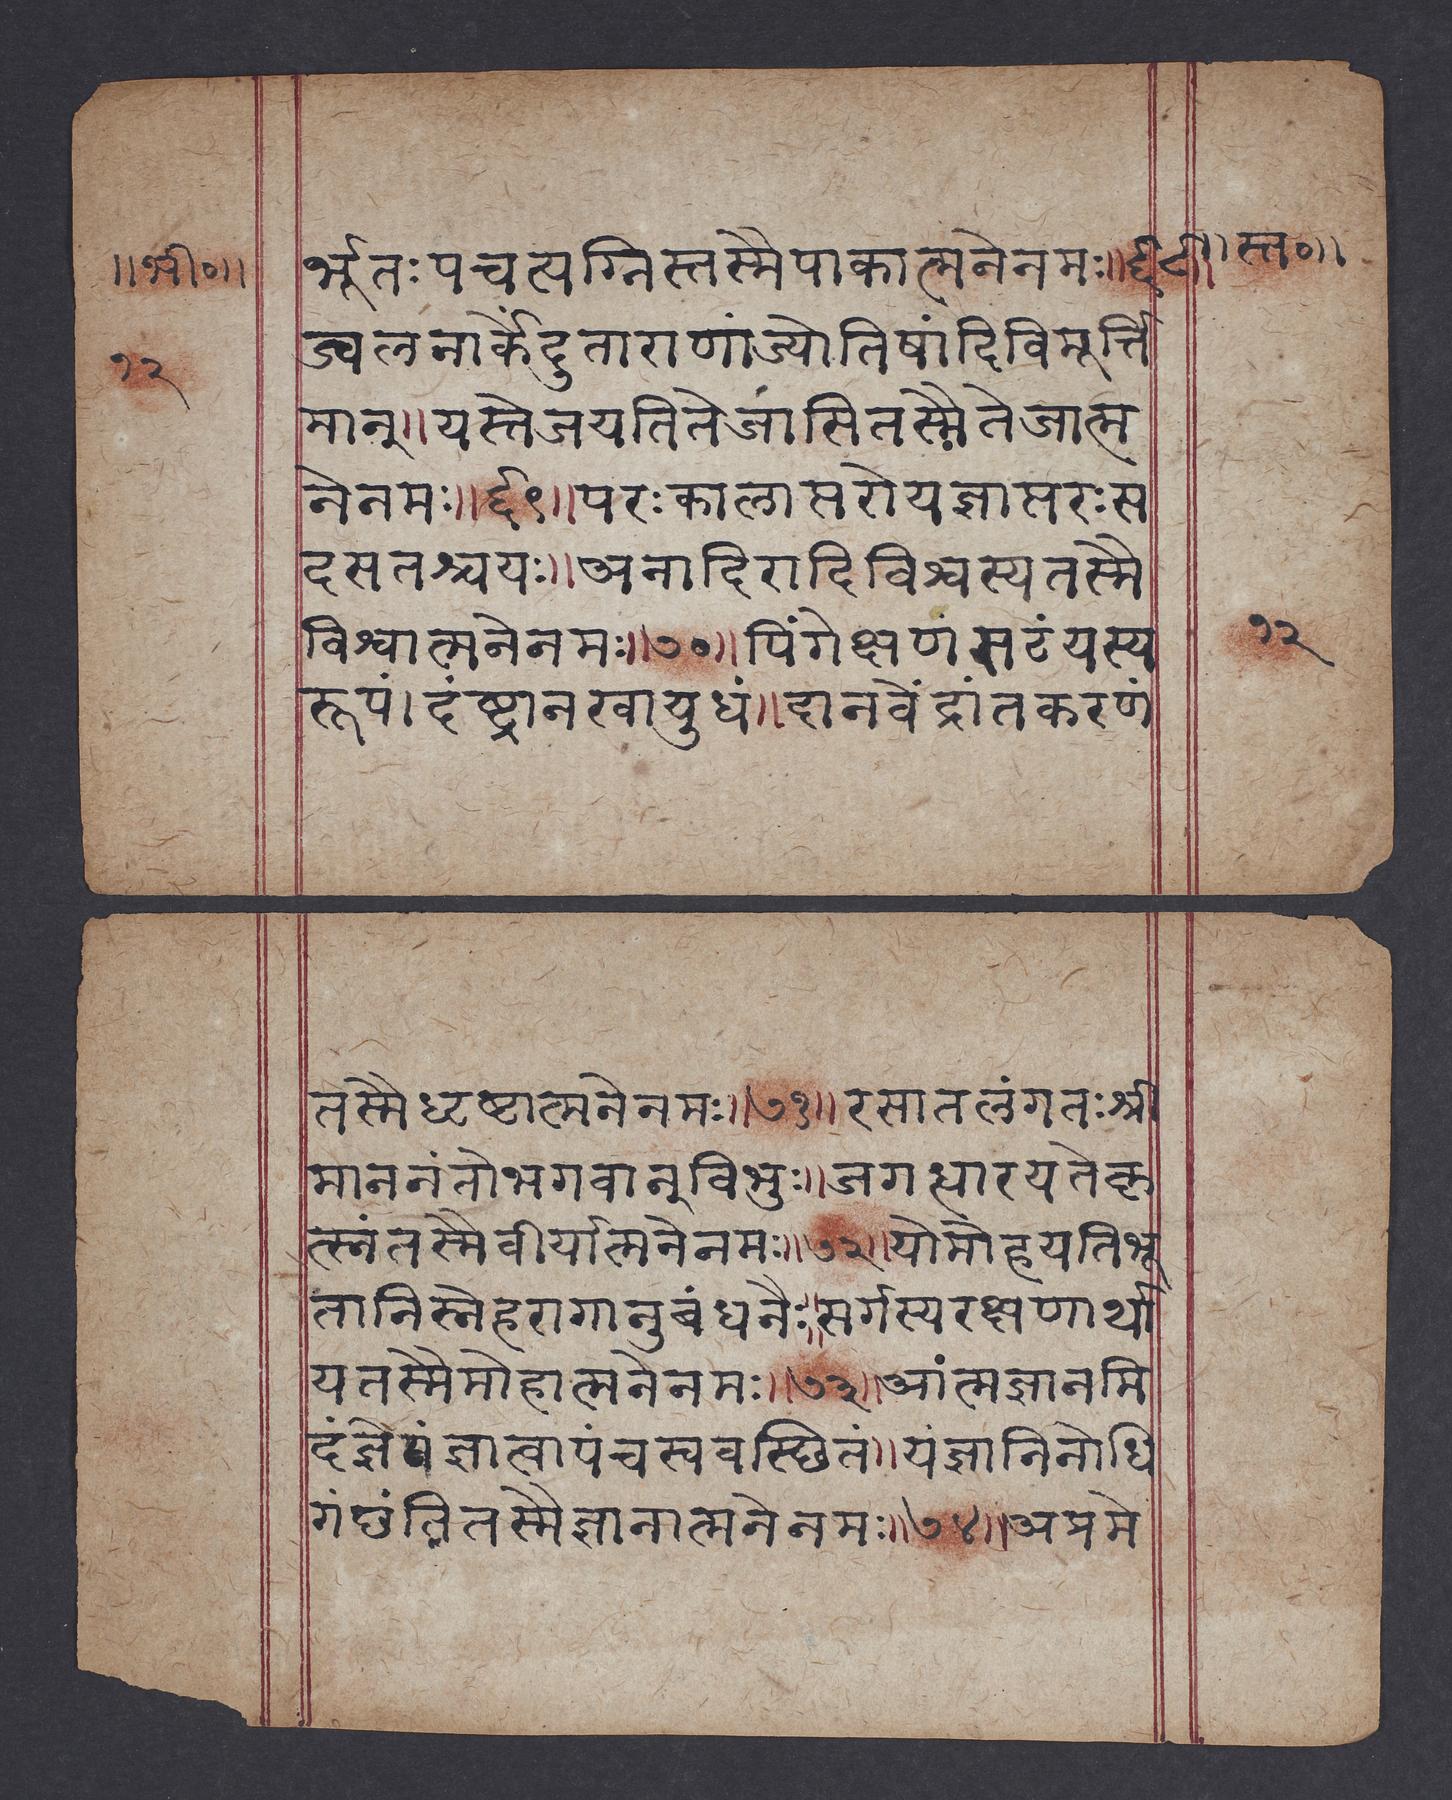 ॥भी०॥ र्भूतः पचत्यग्निस्तस्मै पाकात्मने नमः॥६८॥ ॥स्त०॥
१२ ज्वलनार्केंदुताराणां ज्योतिषां दिवि मूर्त्ति
मान्॥ यस्तेजयति तेजांसि तस्मै तेजात्म
ने नमः॥६९॥ परः कालात्परो यज्ञात्परः स
दसतश्च यः॥ अनादिरादि विश्वस्य तस्मै
विश्वात्मने नमः॥७०॥ पिंगेक्षणं सटं यस्य १२
रूपं। दंष्ट्रानखायुधं॥ दानवेंद्रांतकरणं
तस्मै धृष्टात्मने नमः॥७१॥ रसातलं गतः श्री
माननंतो भगवान् विभुः॥ जगद्धारयते कृ
त्स्नं तस्मै वीर्यात्मने नमः॥७२॥ यो मोहयति भू
तानि स्नेहरागानुबंधनैः॥ सर्गस्य रक्षणार्था
य तस्मै मोहात्मने नमः॥७३॥ आंत्मज्ञानमि
दं ज्ञेयं ज्ञात्वा पंचस्ववस्छितं॥ यं ज्ञानिनोधि
गंछंति तस्मै ज्ञानात्मने नमः॥७४॥ अप्रमे